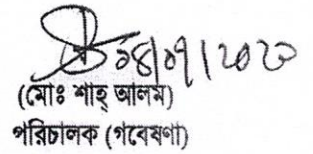 ১৪/০৭/২০২০
(মোঃ শাহ্ আলম)
পরিচালক (গবেষণা)